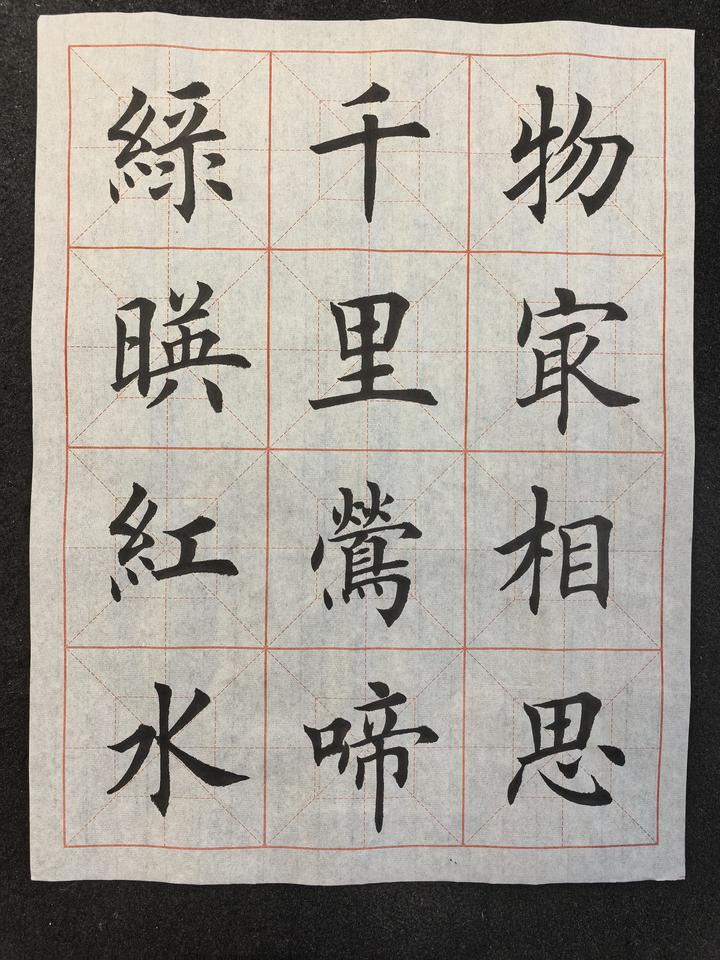 物㝡相思
千里鶯啼
綠暎紅水